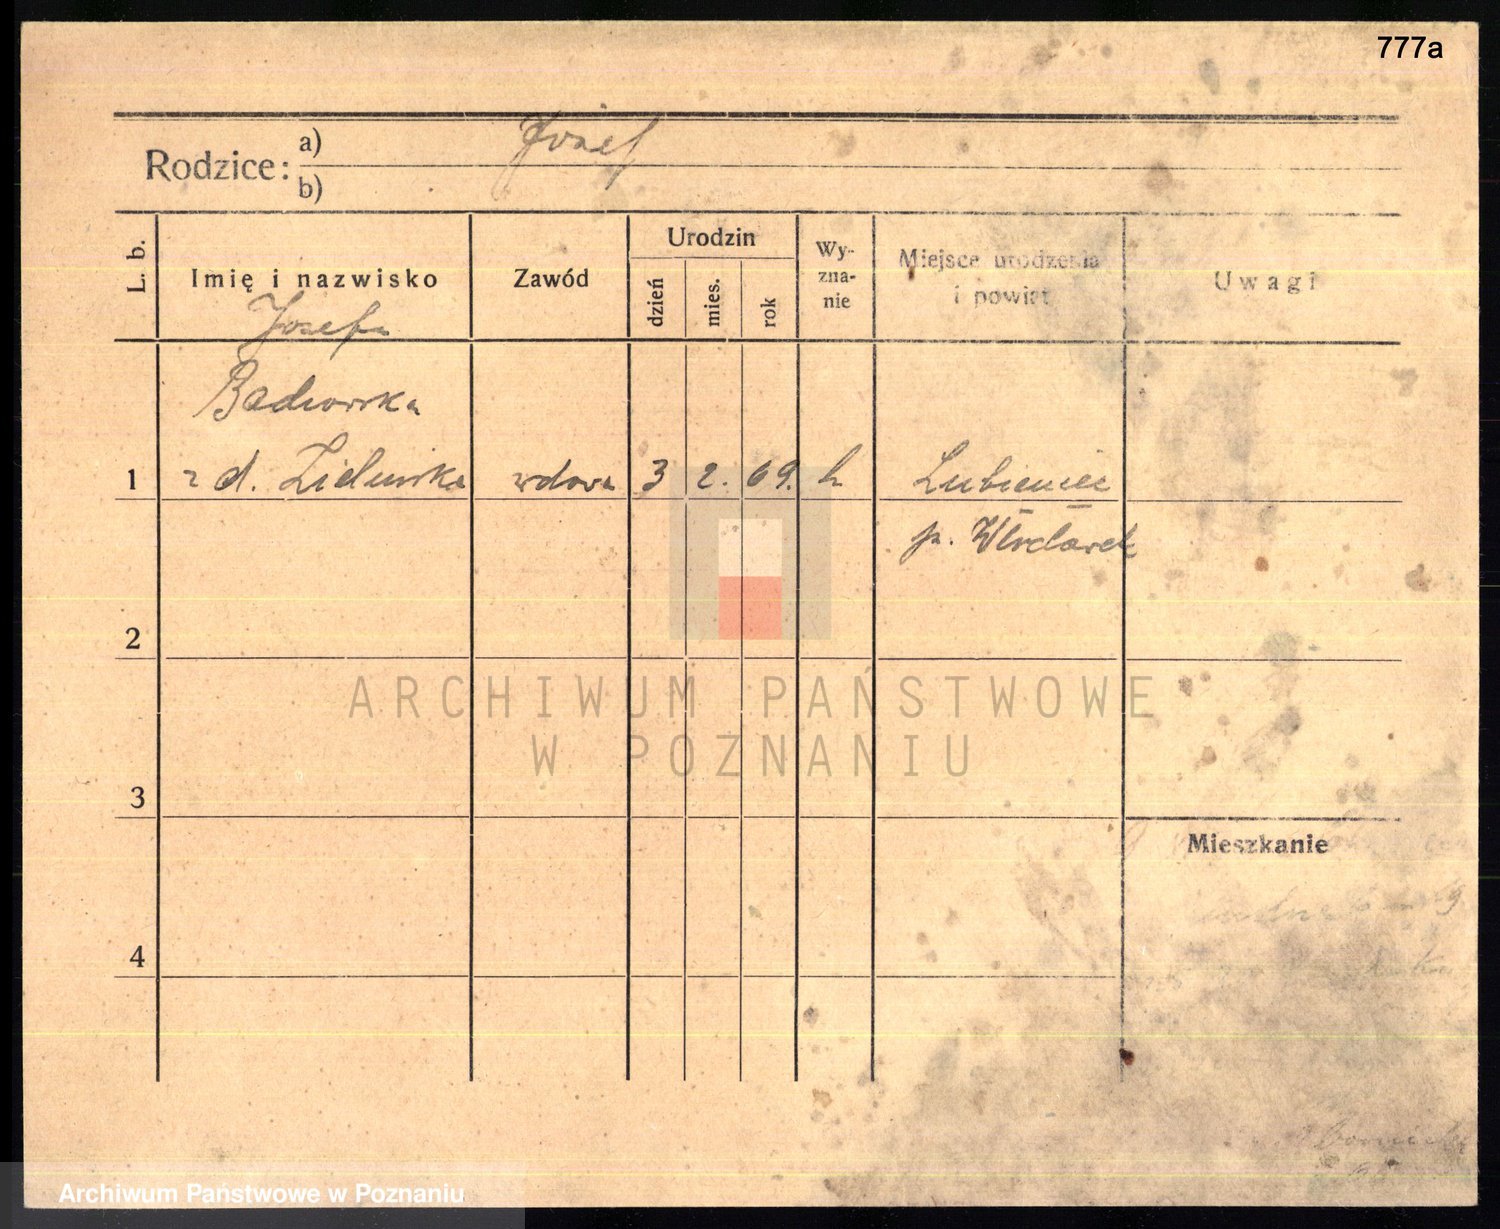 777a
Rodzice: a) Józef
b)
L. b. Imię i nazwisko Zawód Urodzin dzień mies. rok Wy-zna-nie Miejsce urodzenia i powiat Uwagi
Józefa
Badowska
1 z d. Zielińska wdowa 3 2. 69. k Lubieniec
p. Włocławek
2
3
Mieszkanie
4
ARCHIWUM PAŃSTWOWE
W POZNANIU
Archiwum Państwowe w Poznaniu